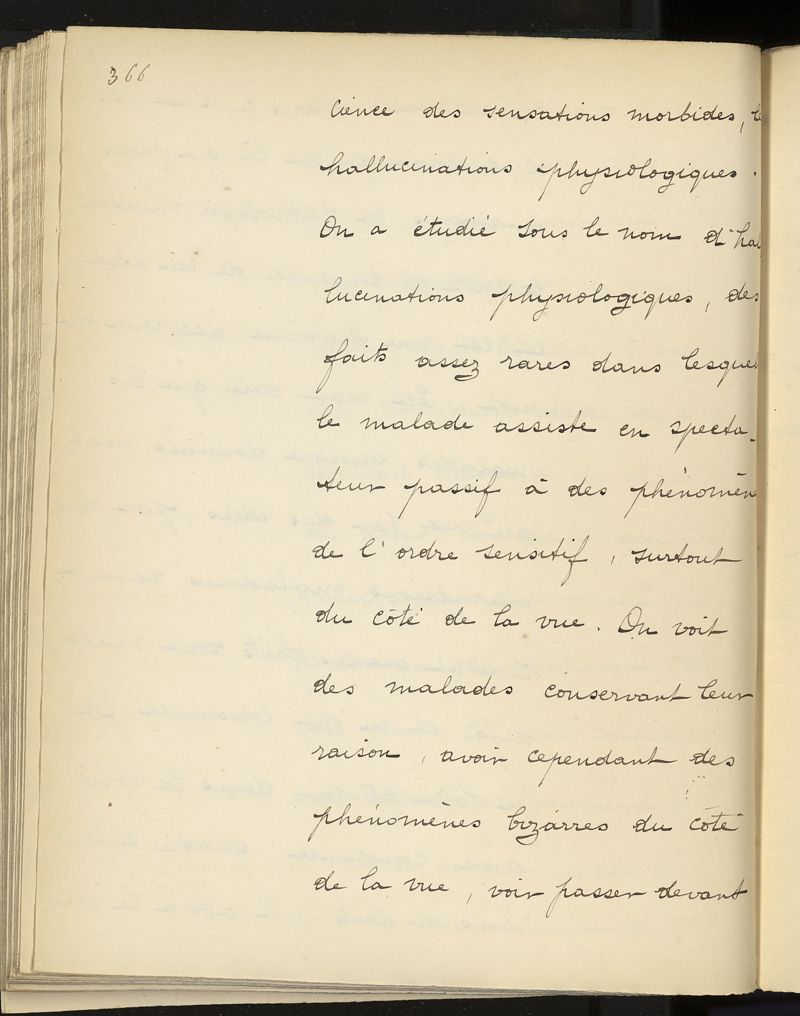 366
cience des sensations morbides, le
hallucinations physiologiques.
On a étudié sous le nom d'hal
lucinations physiologiques, des
faits assez rares dans lesquel
le malade assiste en specta-
teur passif à des phénomèn
de l'ordre sensitif, surtout
du côté de la vue. On voit
des malades conservant leur
raison, avoir cependant des
phénomènes bizarres du côté
de la vue, voir passer devant